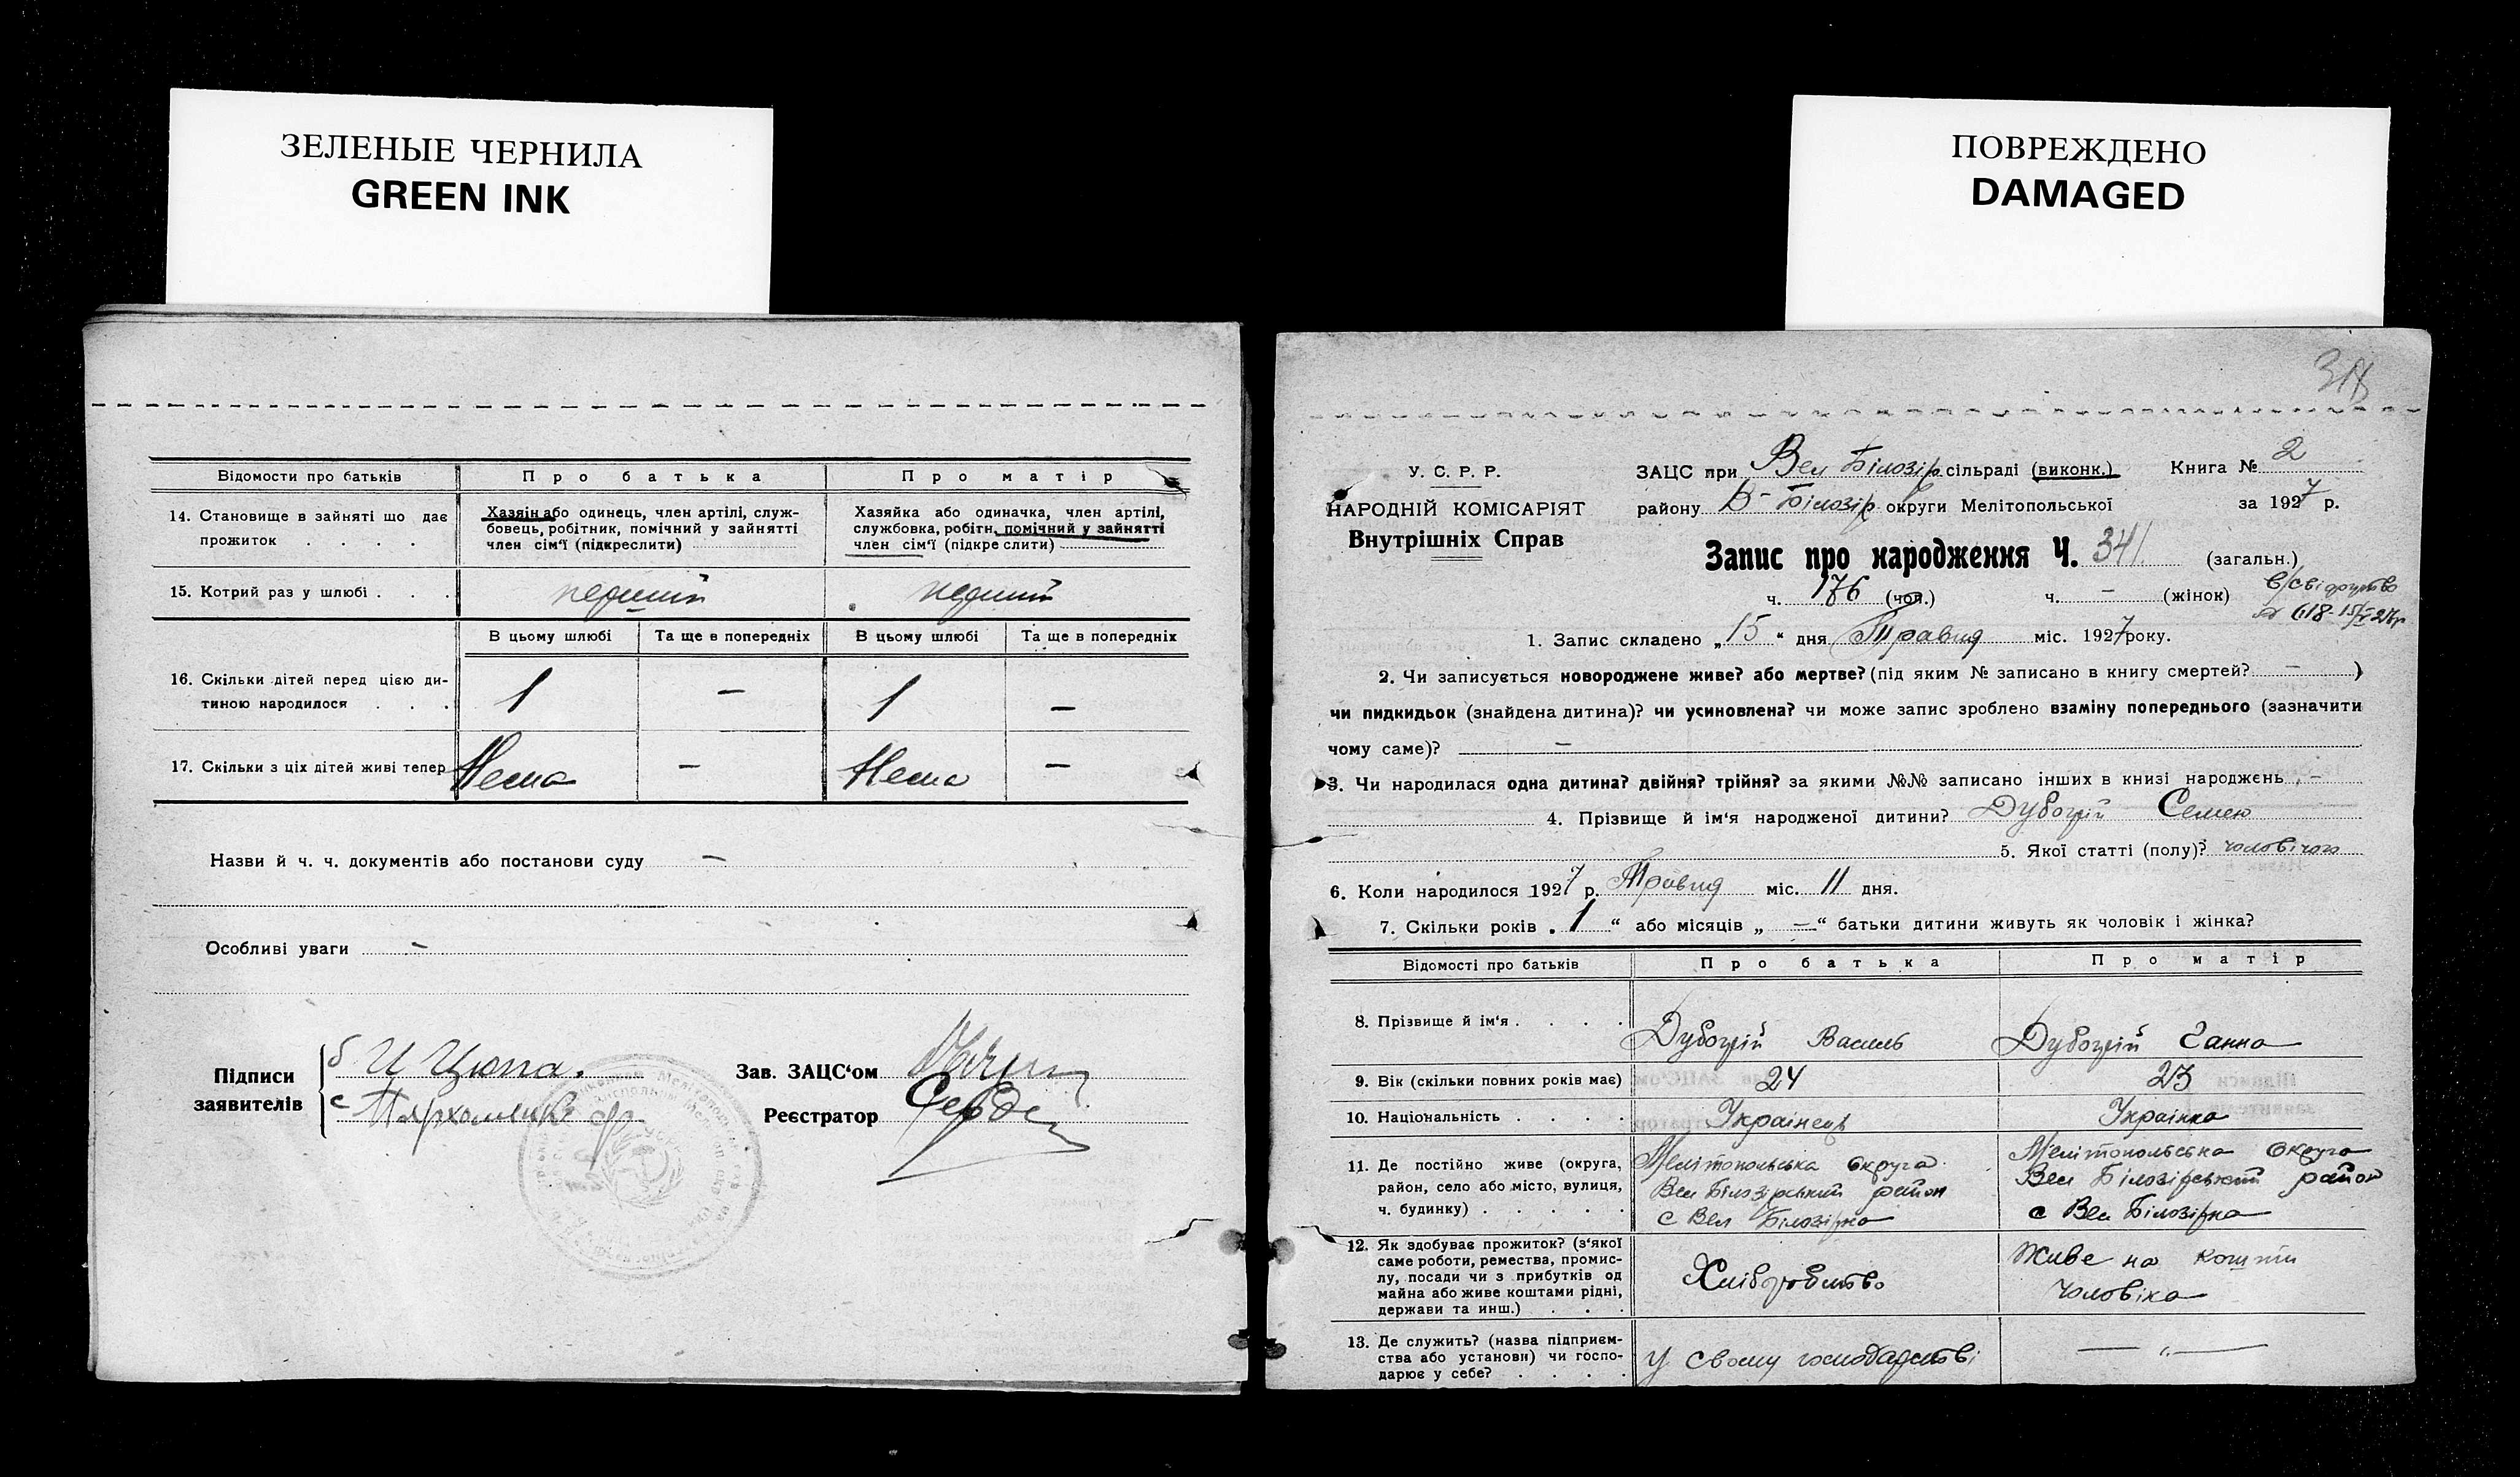 ЗЕЛЕНЫЕ ЧЕРНИЛА
GREEN INK
ПОВРЕЖДЕНО
DAMAGED
Відомости про батьків
Про батька
Про матір
14. Становище в зайняті що дає прожиток . . . .
Хазяін або одинець, член артілі, служ-
бовець, робітник, помічний у зайнятті
член сім‘ї (підкреслити)
Хазяйка або одиначка, член артілі,
службовка, робітн. помічний у зайнятті
член сім‘ї (підкреслити)
15. Котрий раз у шлюбі . . .
перший
перший
В цьому шлюбі
Та ще в попередніх
В цьому шлюбі
Та ще в попередніх
16. Скільки дітей перед цією ди-
тиною народилося . . .
1 — 1 —
17. Скільки з ціх дітей живі тепер
Нема — Нема —
Назви й ч. ч. документів або постанови суду —
Особливі уваги —
Підписи
заявителів
б И Цюпа.
с Пархоменко
Зав. ЗАЦС‘ом
Реєстратор
У. С. Р. Р.
НАРОДНІЙ КОМІСАРІЯТ
Внутрішніх Справ
ЗАЦС при Вел Білозір. сільраді (виконк.) Книга № 2
району В-Білозір. округи Мелітопольської за 1927 р.
Запис про народження Ч. 341. (загальн.)
ч. 176 (чол.) ч. — (жінок)
№ 618
1. Запис складено „ 15 “ дня Травня міс. 1927 року.
2. Чи записується новороджене живе? або мертве? (під яким № записано в книгу смертей? — )
чи пидкидьок (знайдена дитина)? чи усиновлена? чи може запис зроблено взаміну попереднього (зазначити
чому саме)? —
3. Чи народилася одна дитина? двійня? трійня? за якими №№ записано інших в книзі народжень —
4. Прізвище й ім‘я народженої дитини? Дубогрій Семен
5. Якої статті (полу)? чоловічого
6. Коли народилося 1927 р. Травня міс. 11 дня.
7. Скільки років „ 1 “ або місяців „ — “ батьки дитини живуть як чоловік і жінка?
Відомості про батьків
Про батька
Про матір
8. Прізвище й ім‘я . . . .
Дубогрій Василь
Дубогрій Ганна
9. Вік (скільки повних років має)
24
23
10. Національність . . . .
Українець
Українка
11. Де постійно живе (округа,
район, село або місто, вулиця,
ч. будинку) . . . . .
Мелітопольська округа
Вел Білозірський район
с Вел Білозірка
Мелітопольська округа
Вел Білозірський район
с Вел Білозірка
12. Як здобуває прожиток? (з‘якої
саме роботи, ремества, промис-
лу, посади чи з прибутків од
майна або живе коштами рідні,
держави та инш.) . . .
Хліборобство
Живе на кошти
чоловіка
13. Де служить? (назва підприєм-
ства або установи) чи госпо-
дарює у себе? . . . .
у своему господарстві
— „ —